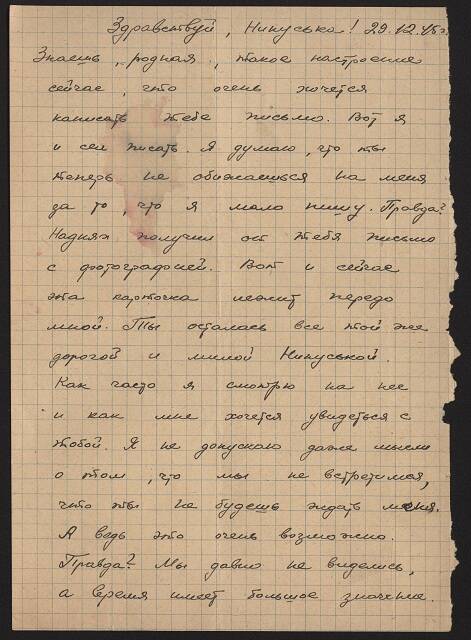 Здравствуй, Нинуська! 29.12.45 г.
Знаешь, родная, такое настроение
сейчас, что очень хочется
написать тебе письмо. Вот я
и сел писать. Я думаю, что ты
теперь не обижаешься на меня
за то, что я мало пишу. Правда?
Надня получил от тебя письмо
с фотографией. Вот и сейчас
эта карточка лежит передо
мной. Ты осталась все той же
дорогой и милой Нинуськой.
Как часто я смотрю на нее
и как мне хочется увидеться с
тобой. Я не допускаю даже мысли
о том, что мы не встретимся,
что ты не будешь ждать меня.
А ведь это очень возможно.
Правда? Мы давно не виделись,
а время имеет большое значение.